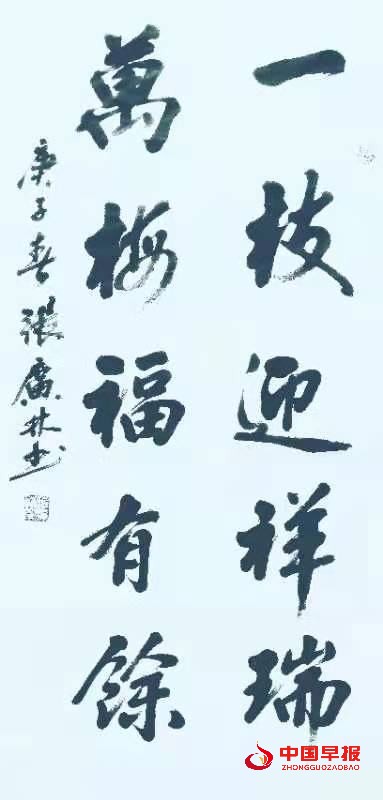 一枝迎祥瑞
萬梅福有餘
庚子春張廣林书
中国早报
ZHONGGUOZAOBAO